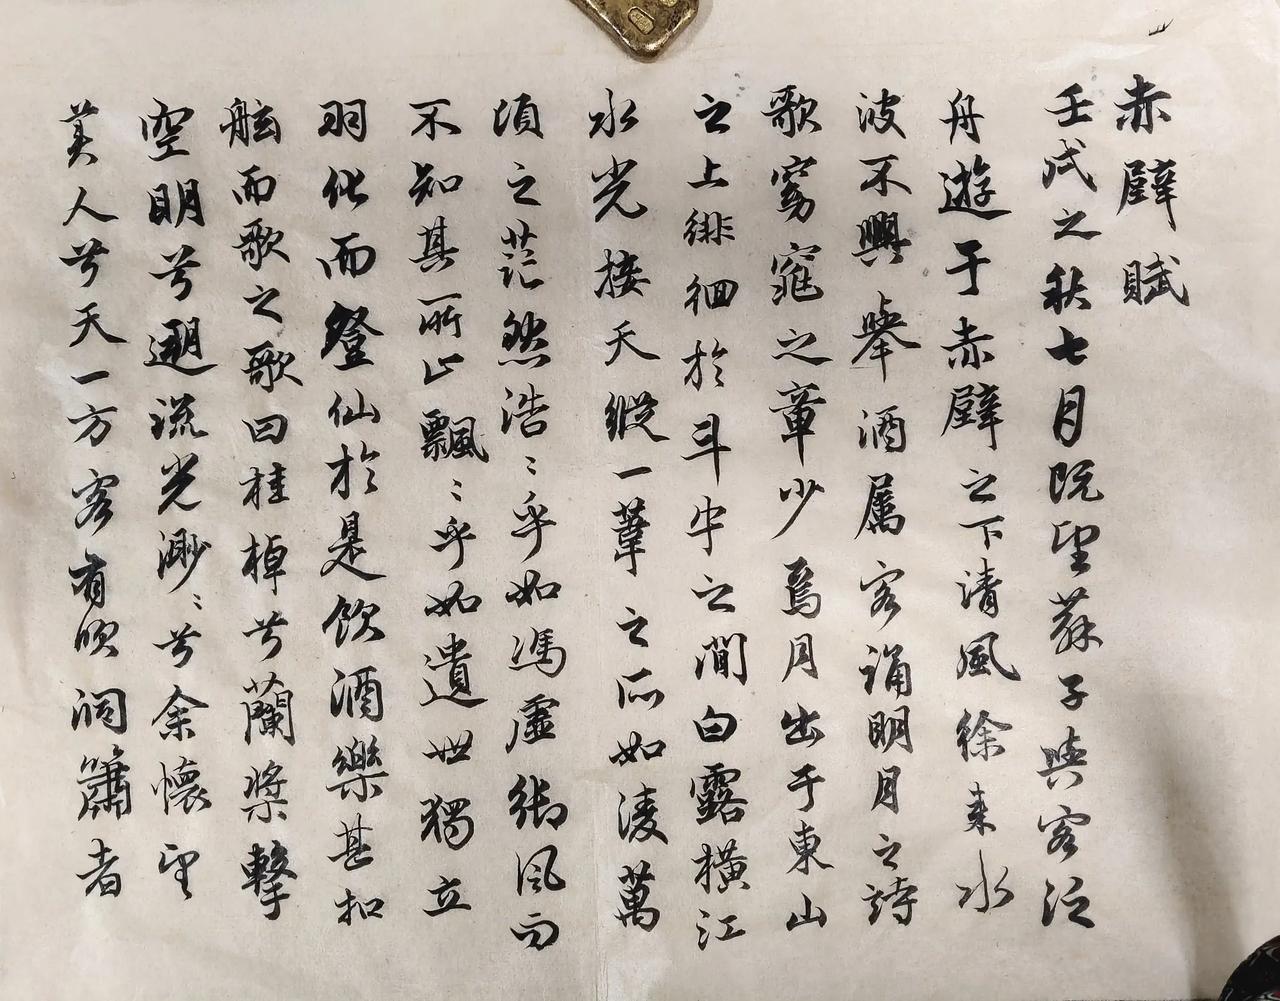 赤壁賦
壬戌之秋七月既望蘇子與客泛
舟遊于赤壁之下清風徐來水
波不興舉酒属客誦明月之詩
歌窈窕之章少焉月出于東山
之上徘徊於斗牛之間白露橫江
水光接天縱一葦之所如淩萬
頃之茫然浩〻乎如馮虛御風而
不知其所止飄〻乎如遺世獨立
羽化而登仙於是飲酒樂甚扣
舷而歌之歌曰桂棹兮蘭槳擊
空明兮遡流光渺〻兮余懷望
美人兮天一方客有吹洞簫者